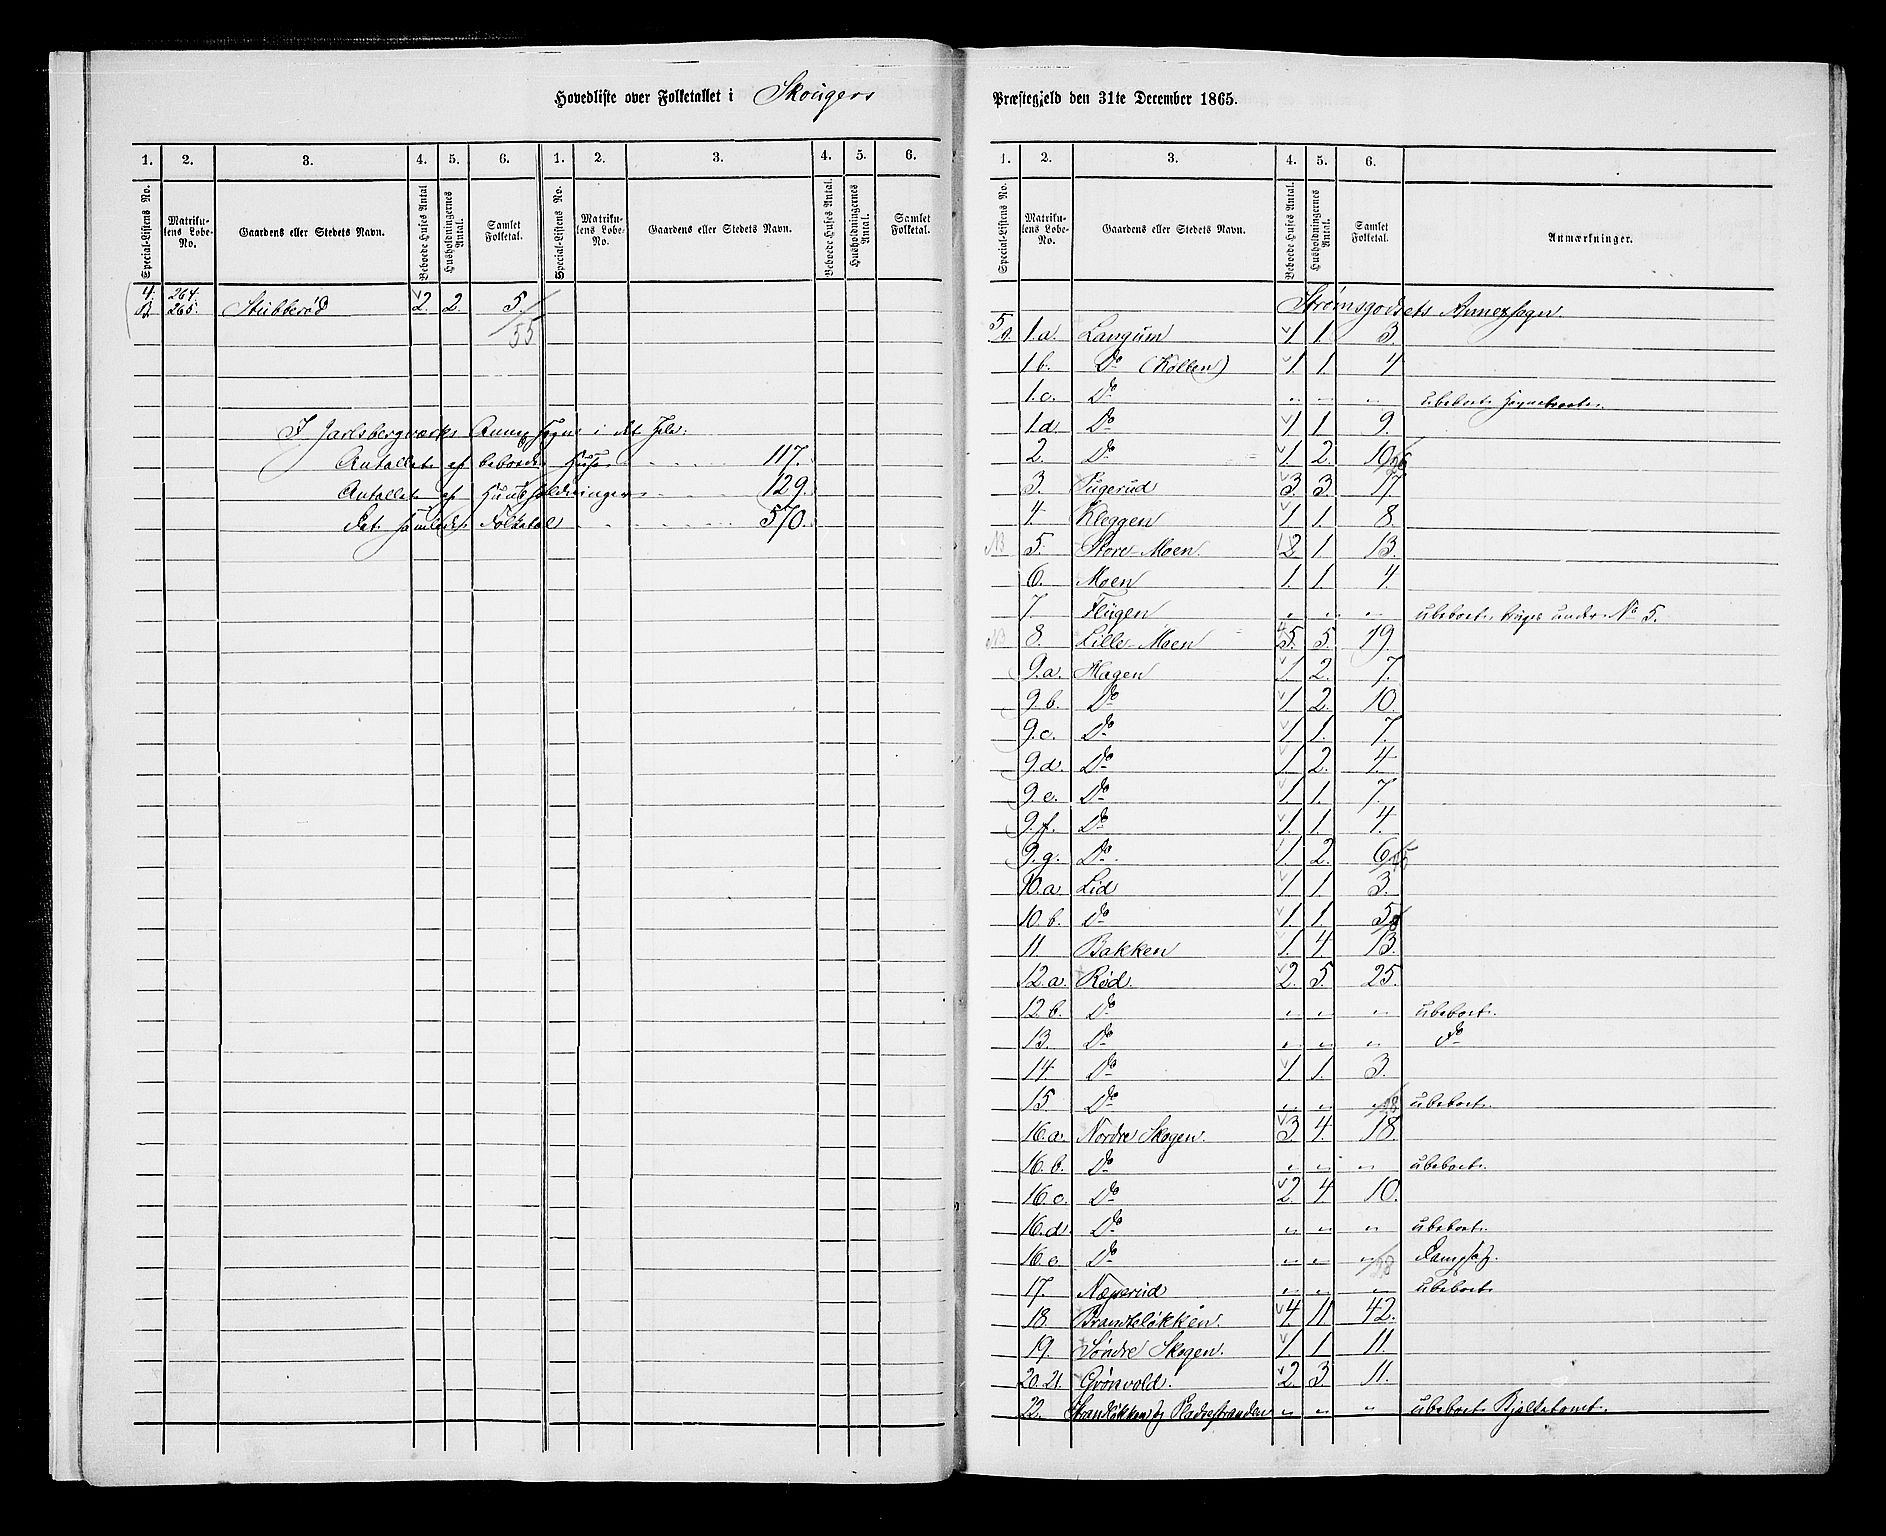 Hovedliste over Folketallet i Skougers Præstegjeld den 31te December 1865.
1. 2. 3. 4. 5. 6. 1. 2. 3. 4. 5. 6.
Special-Listens No. Matriku-lens Løbe-No. Gaardens eller Stedets Navn. Beboede Huses Antal Husholdningernes Antal. Samlet Folketal. Special-Listens No. Matriku-lens Løbe-No. Gaardens eller Stedets Navn. Beboede Huses Antal. Husholdningernes Antal. Samlet Folketal.
4. 264.
B. 265. Stubberød 2. 2. 5.
55
I Jarlsbergværks Annexsogn i det Hele:
Antallet af beboede Huse 117.
Antallet af Huusholdninger 129.
det samlede Folketal 570.
1. 2. 3. 4. 5. 6.
Special-Listens No. Matriku-lens Løbe-No. Gaardens eller Stedets Navn. Beboede Huses Antal. Husholdningernes Antal. Samlet Folketal. Anmærkninger.
Strømsgodsets Annexsogn.
5 1.a. Langum 1 1 3.
1 b. Do (Kolten) 1. 1. 4
1.c. Do " " " ubeboet
1d. Do 1 1 9.
2. Do 1. 2. 10 26
3. Tugerud 3. 3. 17.
4. Kleggen 1 1. 8.
NB 5. Store-Moen 2 1. 13.
6. Moen 1. 1. 4.
7 Flugen " " " ubeboet bruges under No 5.
NB 8. Lille-Moen 5. 5. 19.
9.a. Hagen 1. 2. 7.
9.b. Do 1 2. 10.
9.c. Do 1 1. 7.
9.d. Do 1 2. 4.
9.e. Do 1 1. 7.
9.f. Do 1. 1. 4.
9.g. Do. 1. 2. 6 45
10.a Lid 1 1. 3.
10.b. Do 1. 1. 5 8
11. Bakken 1. 4. 13.
12.a. Rød. 2. 5. 25.
12.b. Do " " " ubeboet.
13. Do " " " do
14. Do 1. 1. 3.
15 Do " " " 28 ubeboet.
16.a. Nordre Skogen. 3 4. 18.
16.b. Do " " " ubeboet.
16.c. Do 2. 4. 10.
16.d. Do " " " ubeboet.
16.e. Do " " " 28 Dampsag.
17. Næperud " " " ubeboet
18. Brandtsløkken. 4. 11 42.
19. Søndre Skogen. 1. 1 11.
20.21. Grønvold. 2. 3. 11.
22. Strandløkken og Pladsestranden " " " ubeboet Bjelketomt.